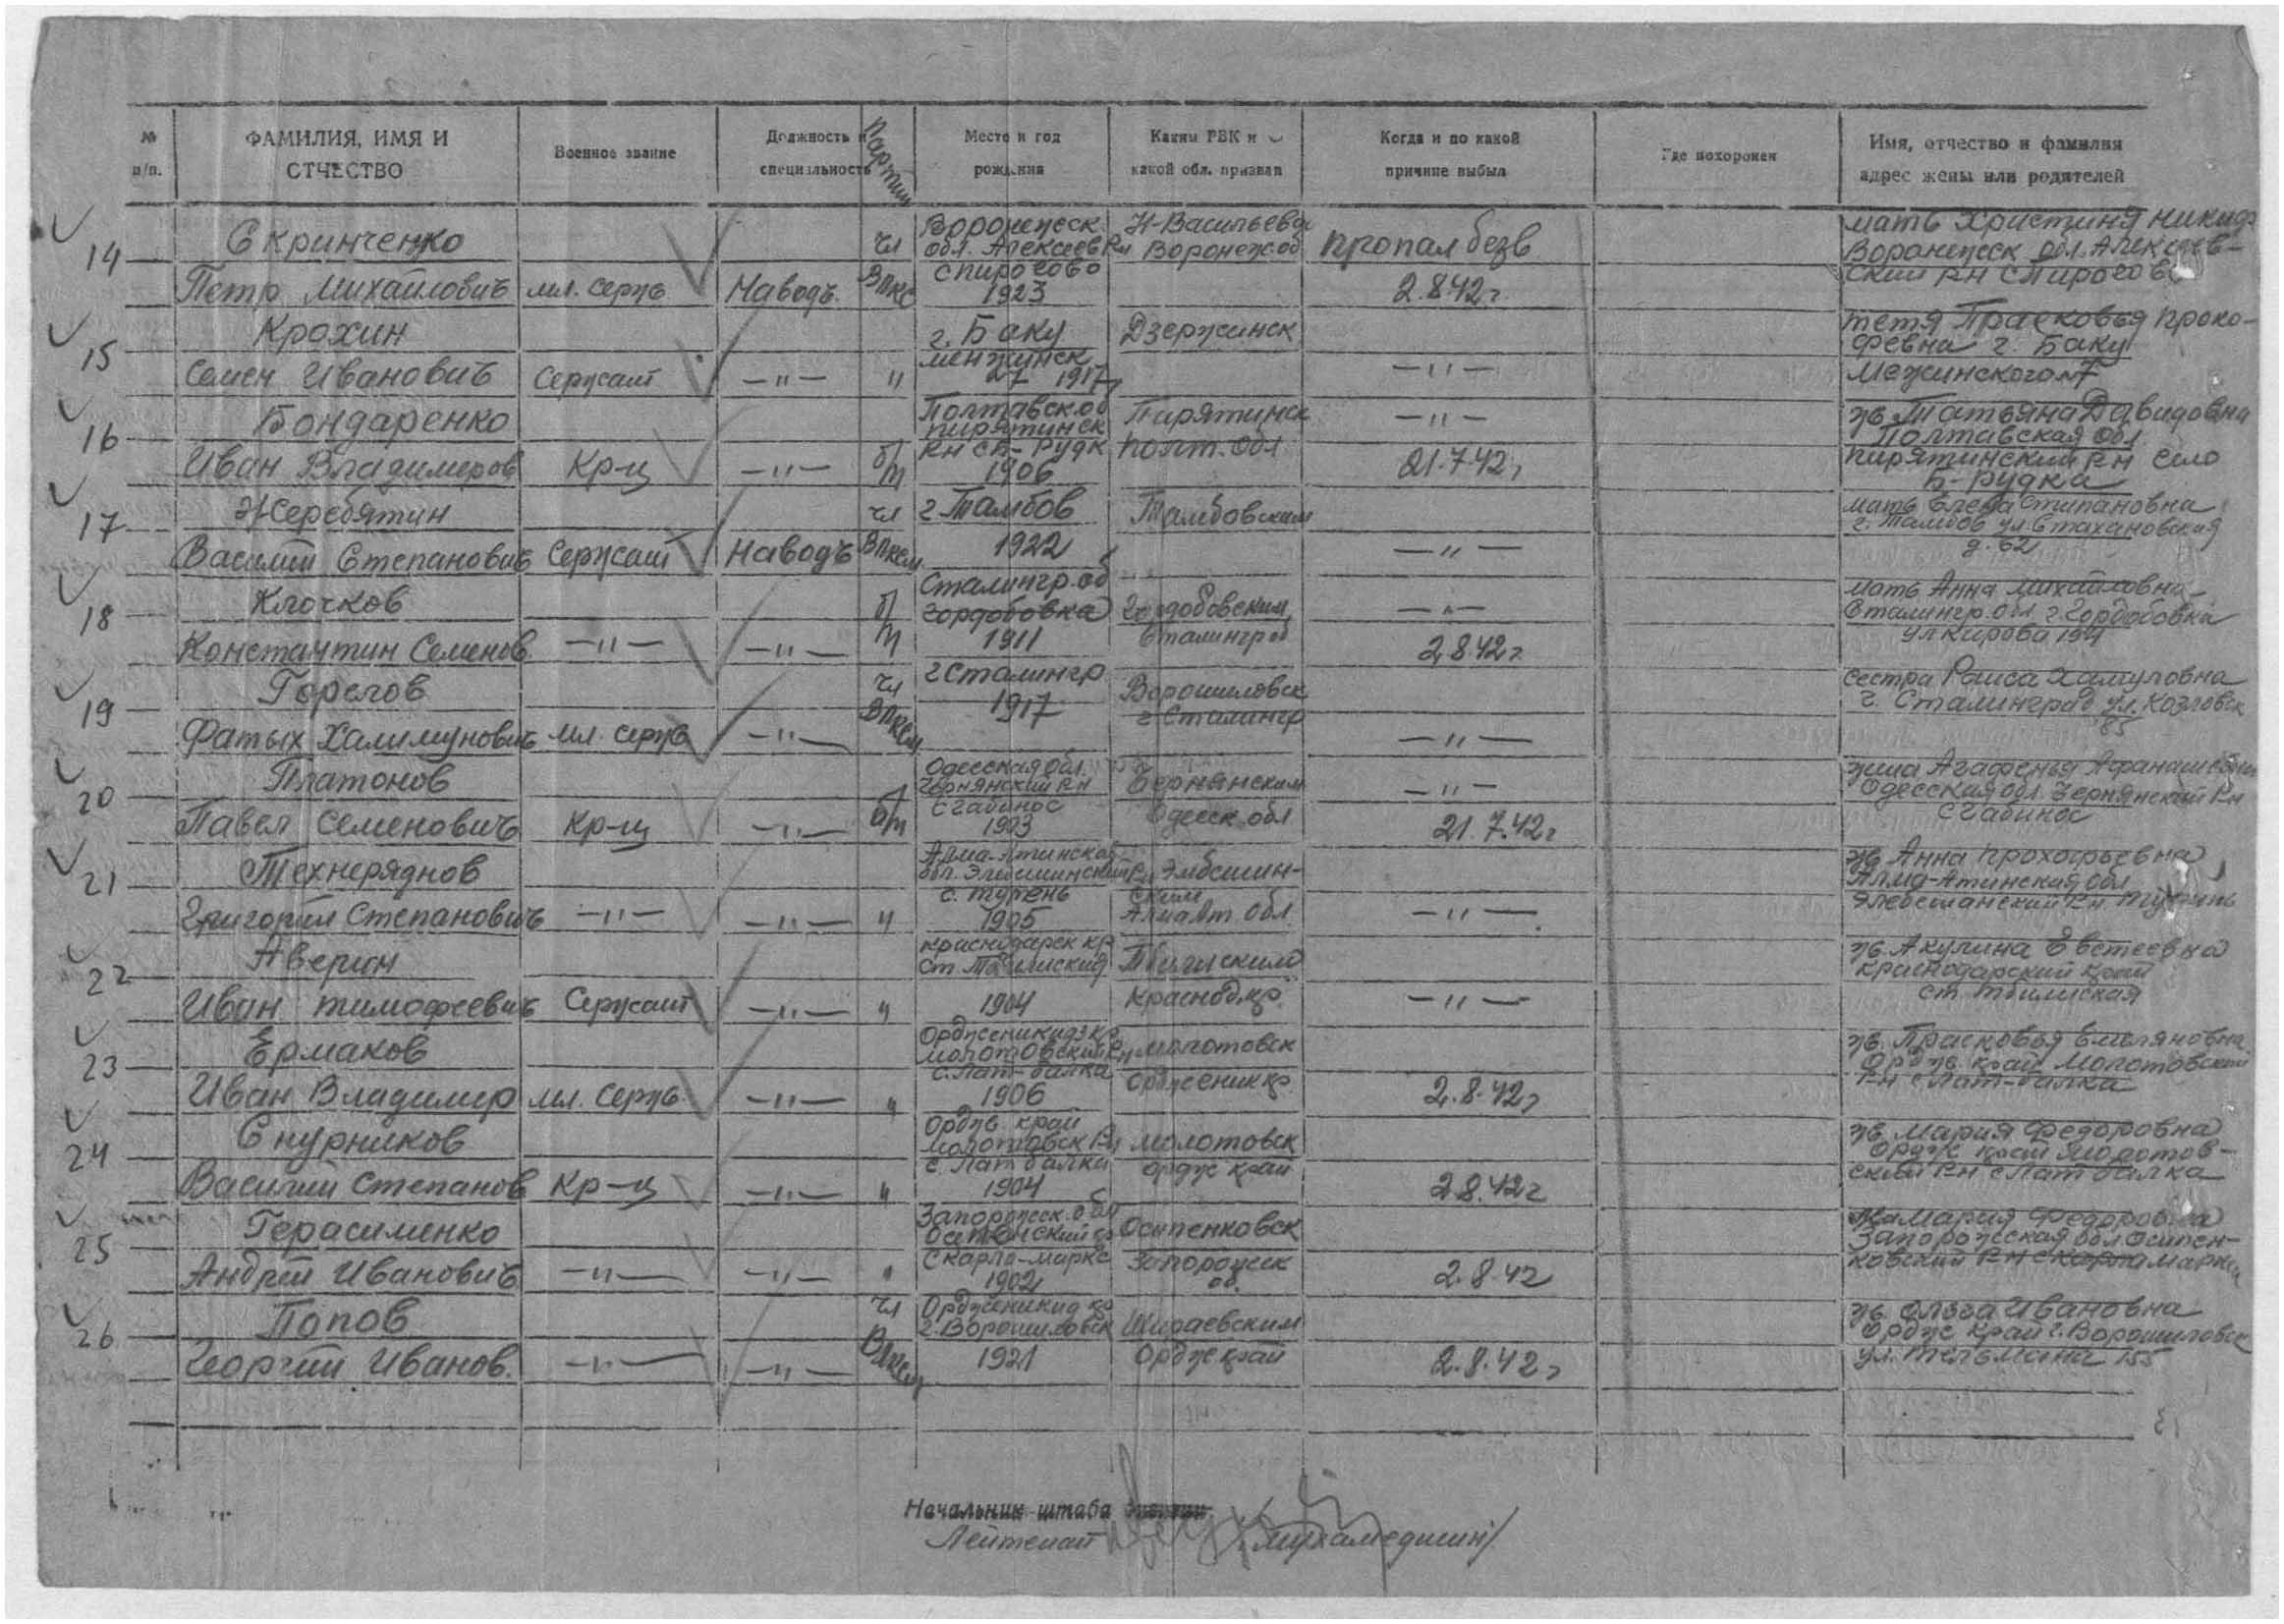 № п/п.
ФАМИЛИЯ, ИМЯ И ОТЧЕСТВО
Военное звание
Должность и специальность
Партии
Место и год рождения
Каким РВК и какой обл. призван
Когда и по какой причине выбыл
Где похоронен
Имя, отчество и фамилия адрес жены или родителей
14
Скринченко
Петр Михайлович
мл. серж
Наводч.
чл ВЛКС
Воронежск обл. Алексеев Рн
1923
Н-Васильевск
Воронеж.об
пропал безв
2.8.42г
мать Христиня
Воронежск обл. Алексеев-
ский Рн
15
Крохин
Семен Иванович
Сержант
—"—
"
г. Баку
менжинск
27 1917
Дзержинск
—"—
тетя Прасковья Проко-
февна г. Баку
16
Бондаренко
Иван Владимеров
Кр-ц
—"—
б/п
Полтавск об
пирятинск
Рн сБ-Рудк
1906
Пирятинск
полт. обл
—"—
21.7.42г
ж. Татьяна Давидовна
Полтавская обл.
пирятинский Рн село
Б-рудка
17
Жеребятин
Василий Степанович
Сержант
Наводч
чл ВЛКСМ
г Тамбов
1922
Тамбовским
—"—
мать Елена Стипановна
г. Тамбов ул. Стахановская
д. 62
18
Клочков
Констаутин Семенов
—"—
—"—
б/п
Сталингр. об
гордобовка
1911
Гордобовским
Сталингр об
—"—
2.8.42г
мать Анна Михайловна
Сталингр. обл г. Гордобовка
ул Кирова
19
Горелов
Фатых Халимунович
мл. серж
—"—
чл ВЛКСМ
г Сталингр
1917
Ворошиловск
г Сталингр
—"—
сестра Раиса
г. Сталинград ул. Козловск
85
20
Платонов
Павел Семенович
Кр-ц
—"—
б/п
Одесская обл.
Чернянский Рн
с Габинос
1903
Чернянским
Одесск. обл
—"—
21.7.42г
Агафенья
Одесская обл. Чернянский Рн
с Габинос
21
Технеряднов
Григорий Степанович
—"—
—"—
"
Алма-Атинская
1905
—"—
ж. Анна
Алма-Атинская обл
22
Аверин
Иван тимофеевич
Сержант
—"—
"
краснодарск кр
1904
Краснод кр.
—"—
ж. Акулина Евстеевна
краснодарский край
ст. тбилиская
23
Ермаков
Иван Владимир
мл. Серж.
—"—
"
Орджоникидз кр
молотовский Рн
с. Лат-балка
1906
молотовск
2.8.42г
ж. Прасковья Емеляновна
Ордж. край Молотовский
Рн с Лат-балка
24
Снурников
Василий Степанов
Кр-ц
—"—
"
Ордж край
молотовск Рн
с. Лат балки
1904
молотовск
ордж край
2.8.42г
ж. Мария Федоровна
Ордж край Молотов-
ский Рн с Лат балка
25
Герасименко
Андрей Иванович
—"—
—"—
"
Запорожск. обл
с Карло-Маркс
1902
Осипенковск
Запорожск об.
2.8.42
Мария Федоровна
Запорожская обл Осипен-
ковский Рн
26
Попов
Георгий Иванов.
—"—
—"—
чл ВЛКСМ
г. Ворошиловск
1921
Ордж край
2.8.42г
ж. Ольга Ивановна
Ордж край г. Ворошиловск
ул. Тельмана 155
Начальник штаба
Лейтенант
/Мухамедшин/